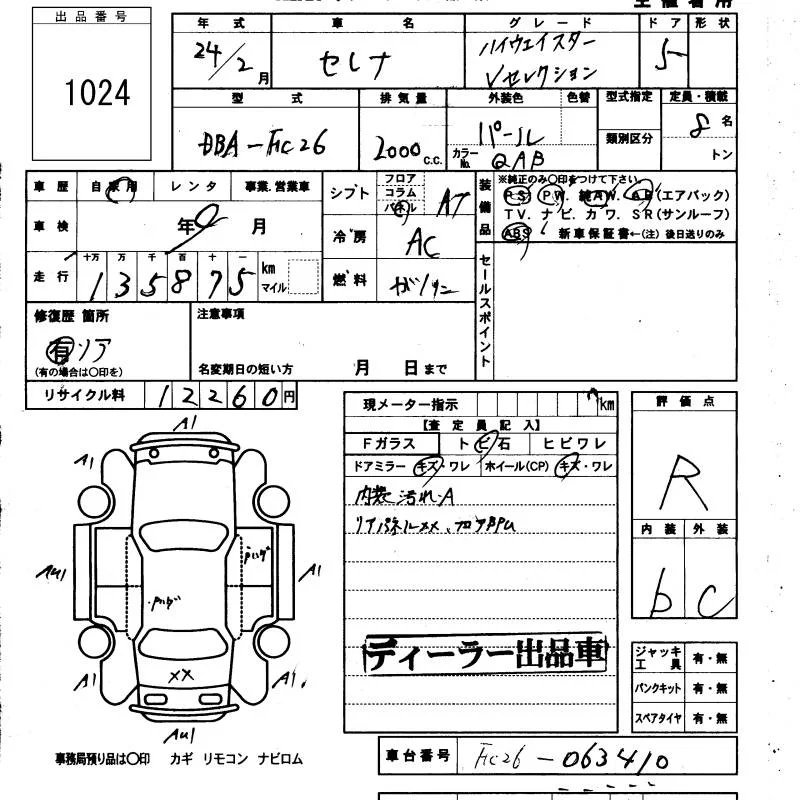 出品番号
1024
年式 車名 グレード ドア 形状
24/2月 セレナ ハイウェイスター
Vセレクション 5
型式 排気量 外装色 色替 型式指定 定員・積載
DBA-FC26 2000 c.c. パール 類別区分 8名
カラーNo. QAB トン
車歴 自家用 レンタ 事業.営業車
シフト フロア コラム パネル AT
装備品 ※純正のみ○印をつけて下さい。
PS. PW. 純AW. AB(エアバック)
TV. ナビ. カワ. SR(サンルーフ)
ABS 新車保証書←(注)後日送りのみ
車検 年9月
冷房 AC
走行 十万 万 千 百 十 一
135875 km マイル
燃料 ガソリン
セールスポイント
修復歴 箇所
有 リア
(有の場合は○印を)
注意事項
名変期日の短い方 月 日まで
リサイクル料 12260円
現メーター指示 km
【査定員記入】
Fガラス トビ石 ヒビワレ
ドアミラー キズ・ワレ ホイール(CP) キズ・ワレ
内装 汚れA
リアパネルXX、フロア部PU
ディーラー出品車
評価点
R
内装 外装
b C
ジャッキ工具 有・無
パンクキット 有・無
スペアタイヤ 有・無
A1
A1
AU1 A1
XX
A1 A1
AU1
事務局預り品は○印 カギ リモコン ナビロム
車台番号 FC26-063410